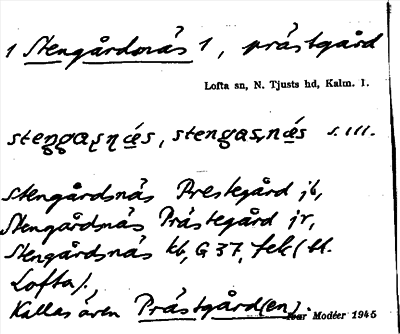 1 Stengårdsnäs 1, prästgård
Lofta sn, N. Tjusts hd, Kalm. l.
stengaʂnæ̀s, stengasnæ̀s s. III.
Stengårdsnäs Prestegård jb,
Stengårdsnäs Prästegård jr,
Stengårdsnäs kb, G 37, fek (tl.
Lofta).
Kallas även Prästgård(en).
Ivar Modéer 1945